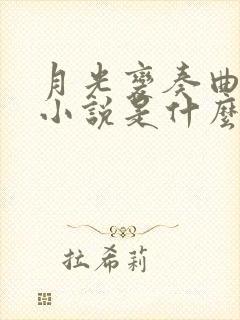 月光變奏曲
小說是什麼
拉希莉